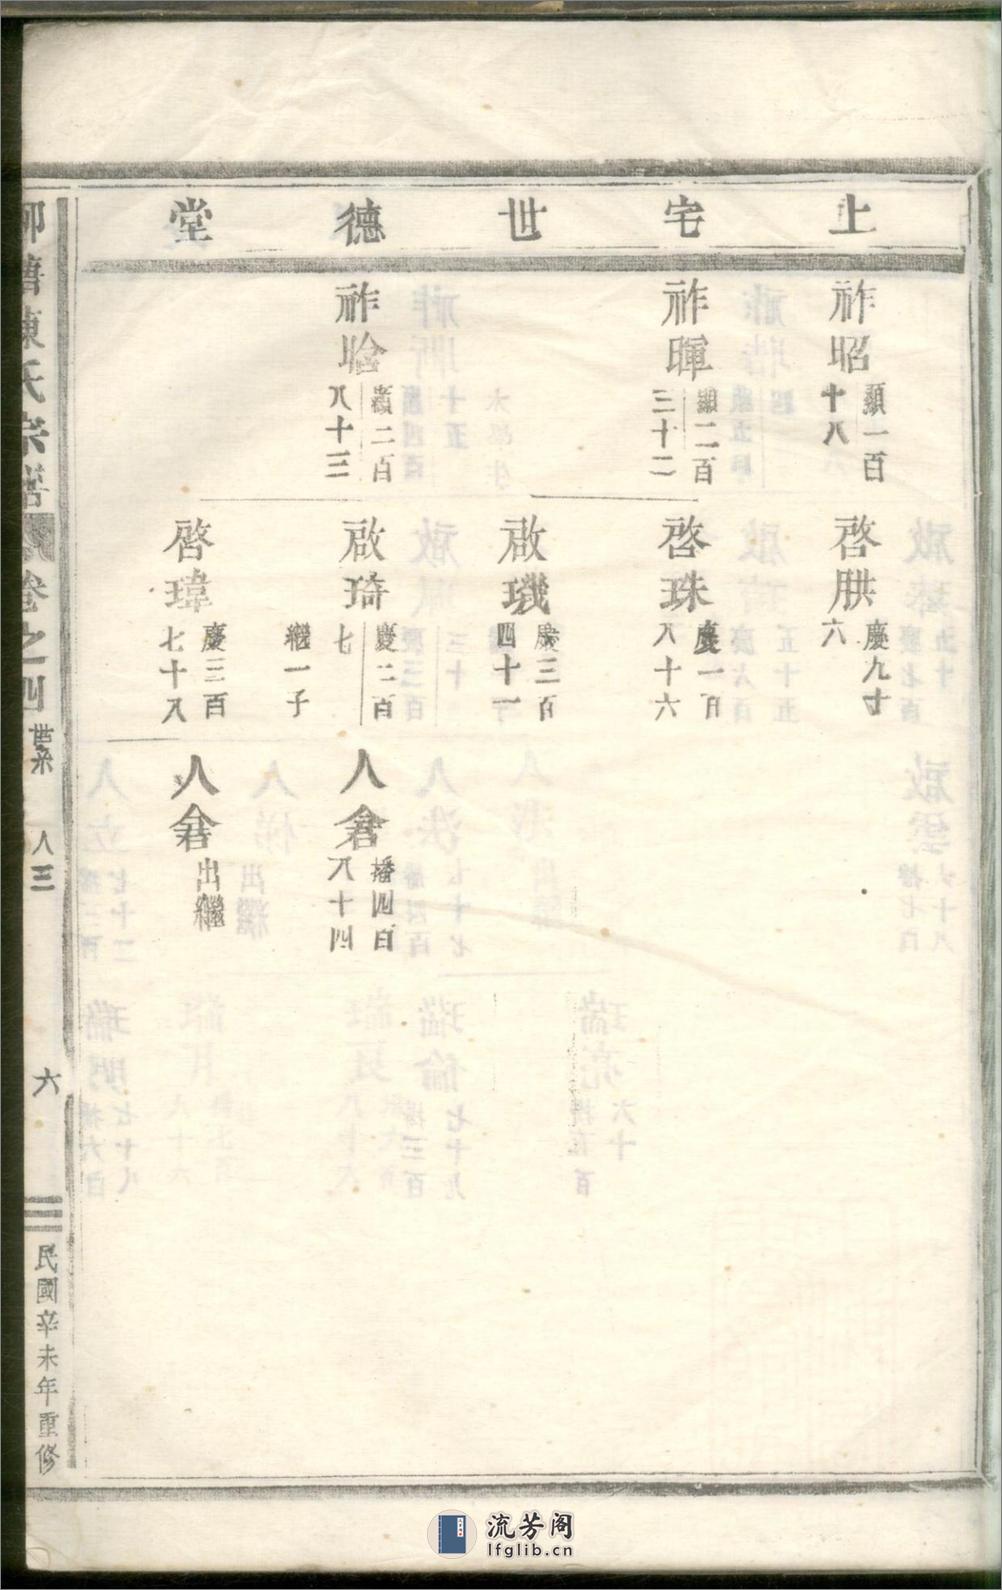 上宅世德堂
祚昭
顯一百
十八
祚暉
顯二百
三十二
祚晗
顯二百
八十三
啓
慶九十
六
啓珠
慶一百
八十六
啟璣
慶三百
四十一
啟琦
慶二百
七
繼一子
啓瑋
慶三百
七十八
人
播四百
八十四
人
出繼
陳氏宗譜
卷之四
世系
人三
六
民國辛未年重修
流芳阁
lfglib.cn